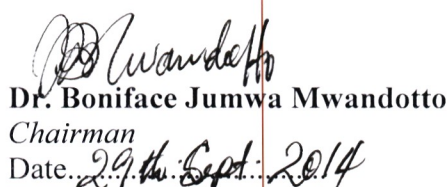 Mwandotto
Dr. Boniface Jumwa Mwandotto
Chairman
Date...29th Sept. 2014